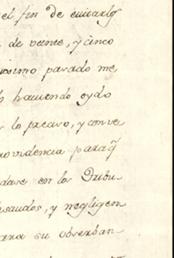 el fin de evitarlo
de veinte, y cinco
ximo pasado me
haviendo oydo
lo preciso, y conve
rovidencia para q
dase con los Tribu
lesaudos, y negligen
para su observan